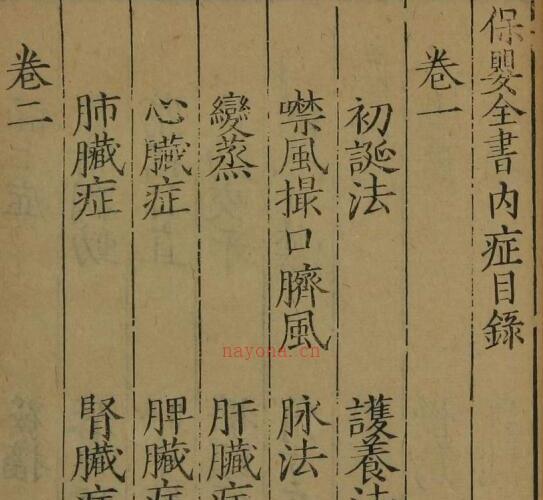 保嬰全書內症目錄
卷一
初誕法 護養法
噤風撮口臍風 脉法
變蒸 肝臟症
心臟症 脾臟症
肺臟症 腎臟症
卷二
nayona.cn